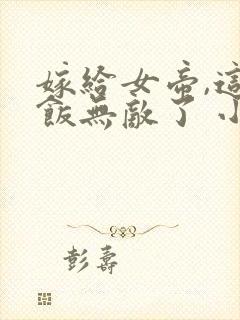 嫁給女帝,這
飯無敵了 小
彭壽